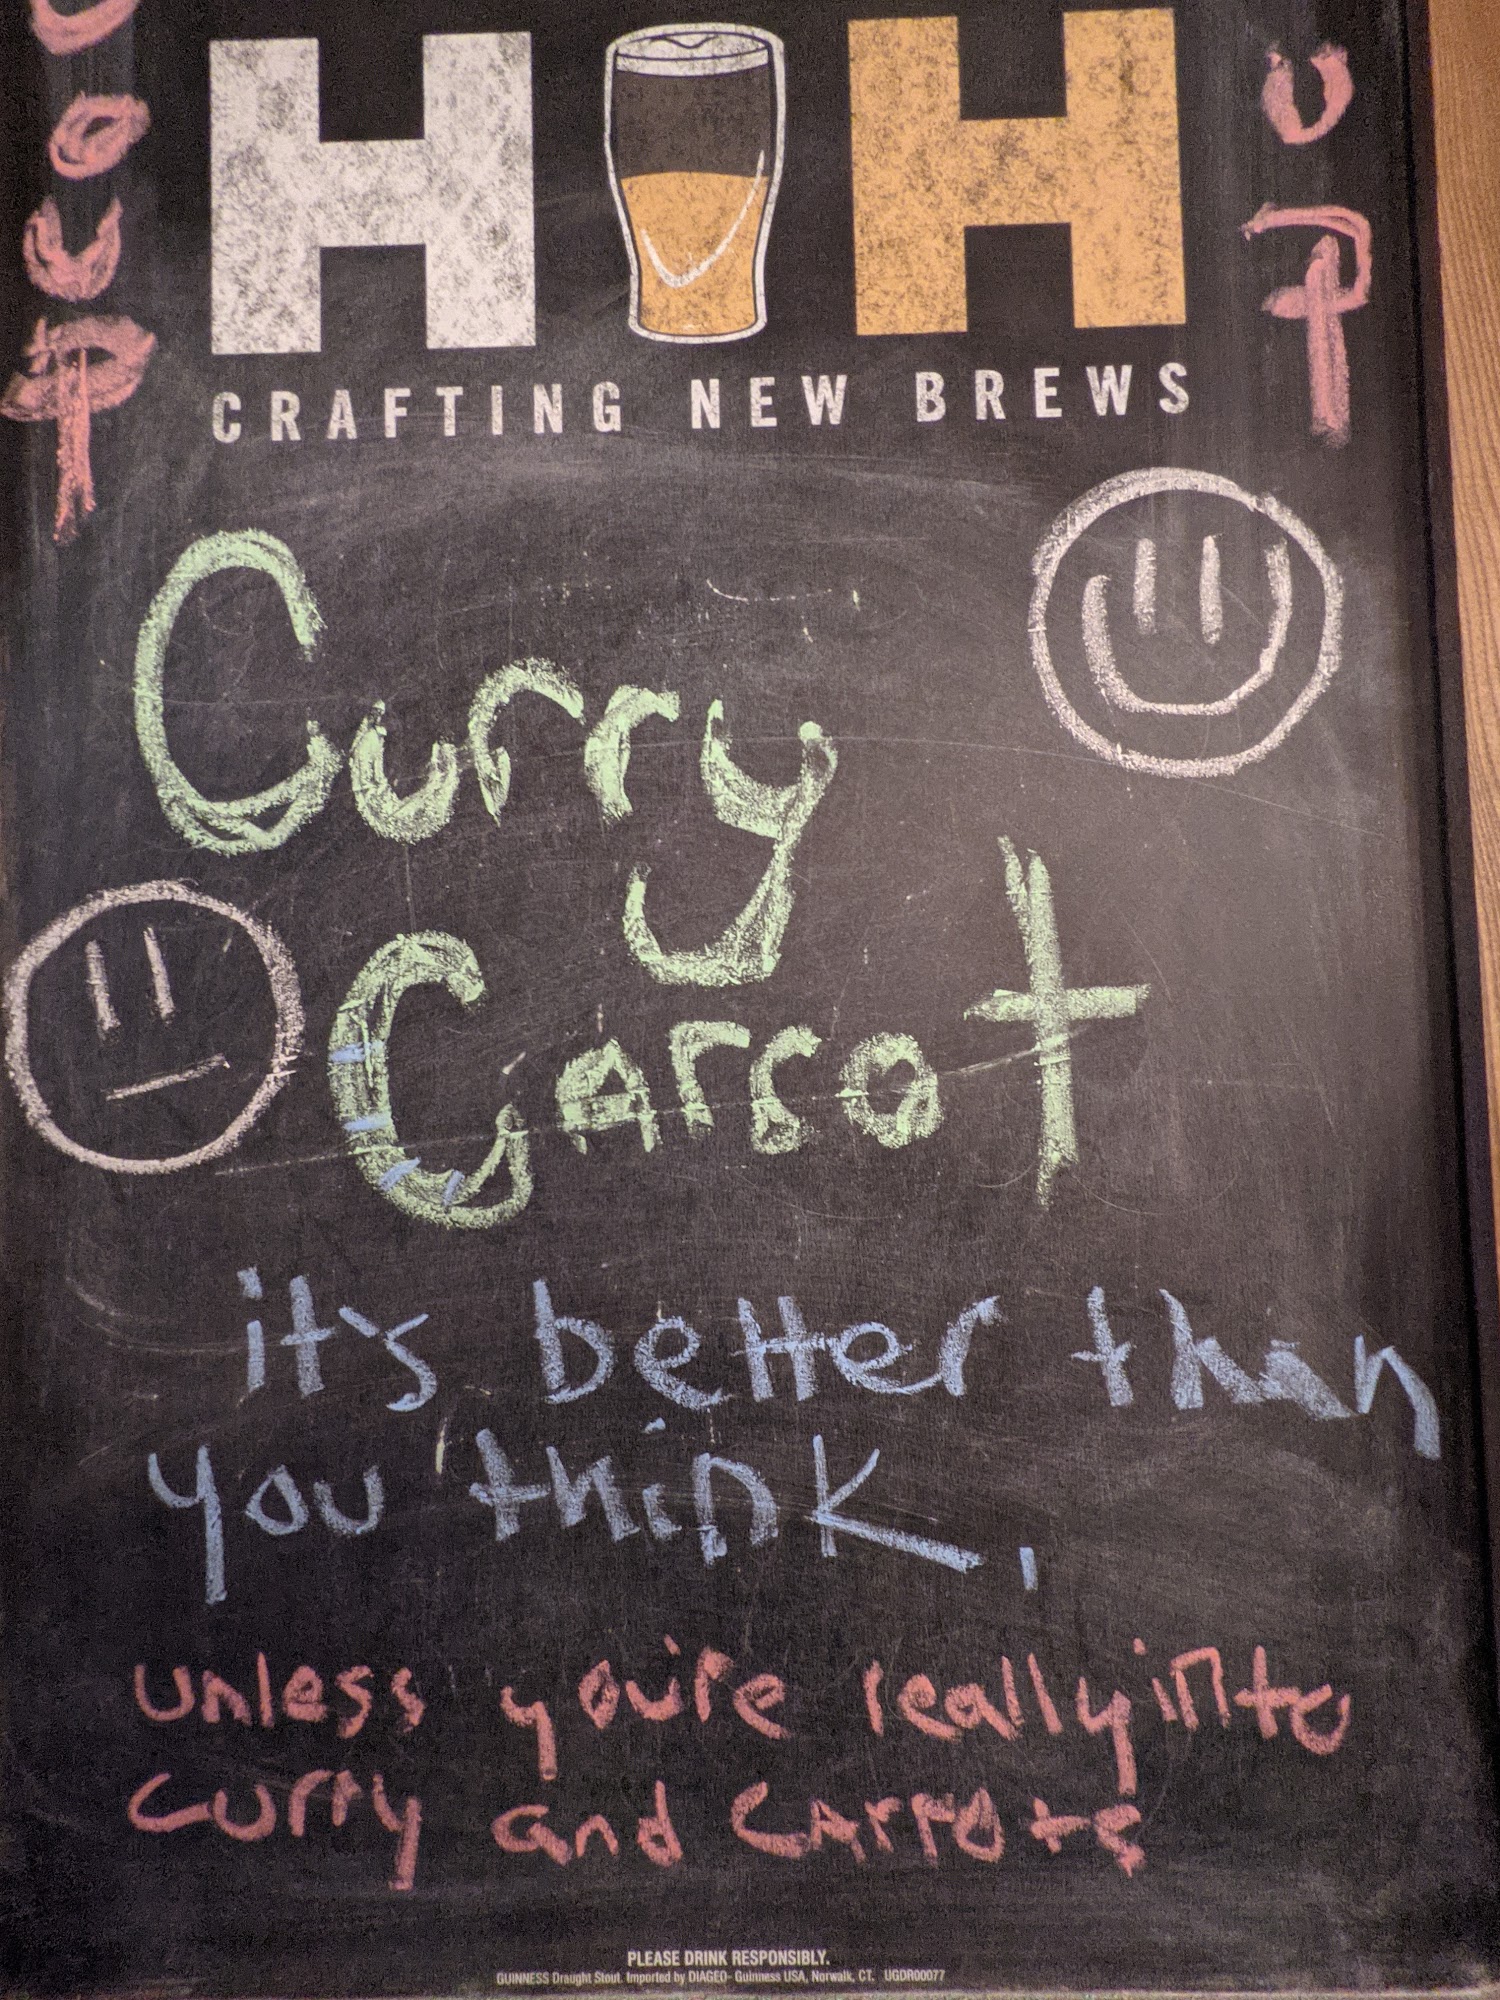 H H
CRAFTING NEW BREWS
o
u
P
U
P
Curry
Carrot
it's better than
you think,
unless you're really into
curry and carrots
PLEASE DRINK RESPONSIBLY.
GUINNESS Draught Stout. Imported by DIAGEO- Guinness USA, Norwalk, CT. UGDR00077